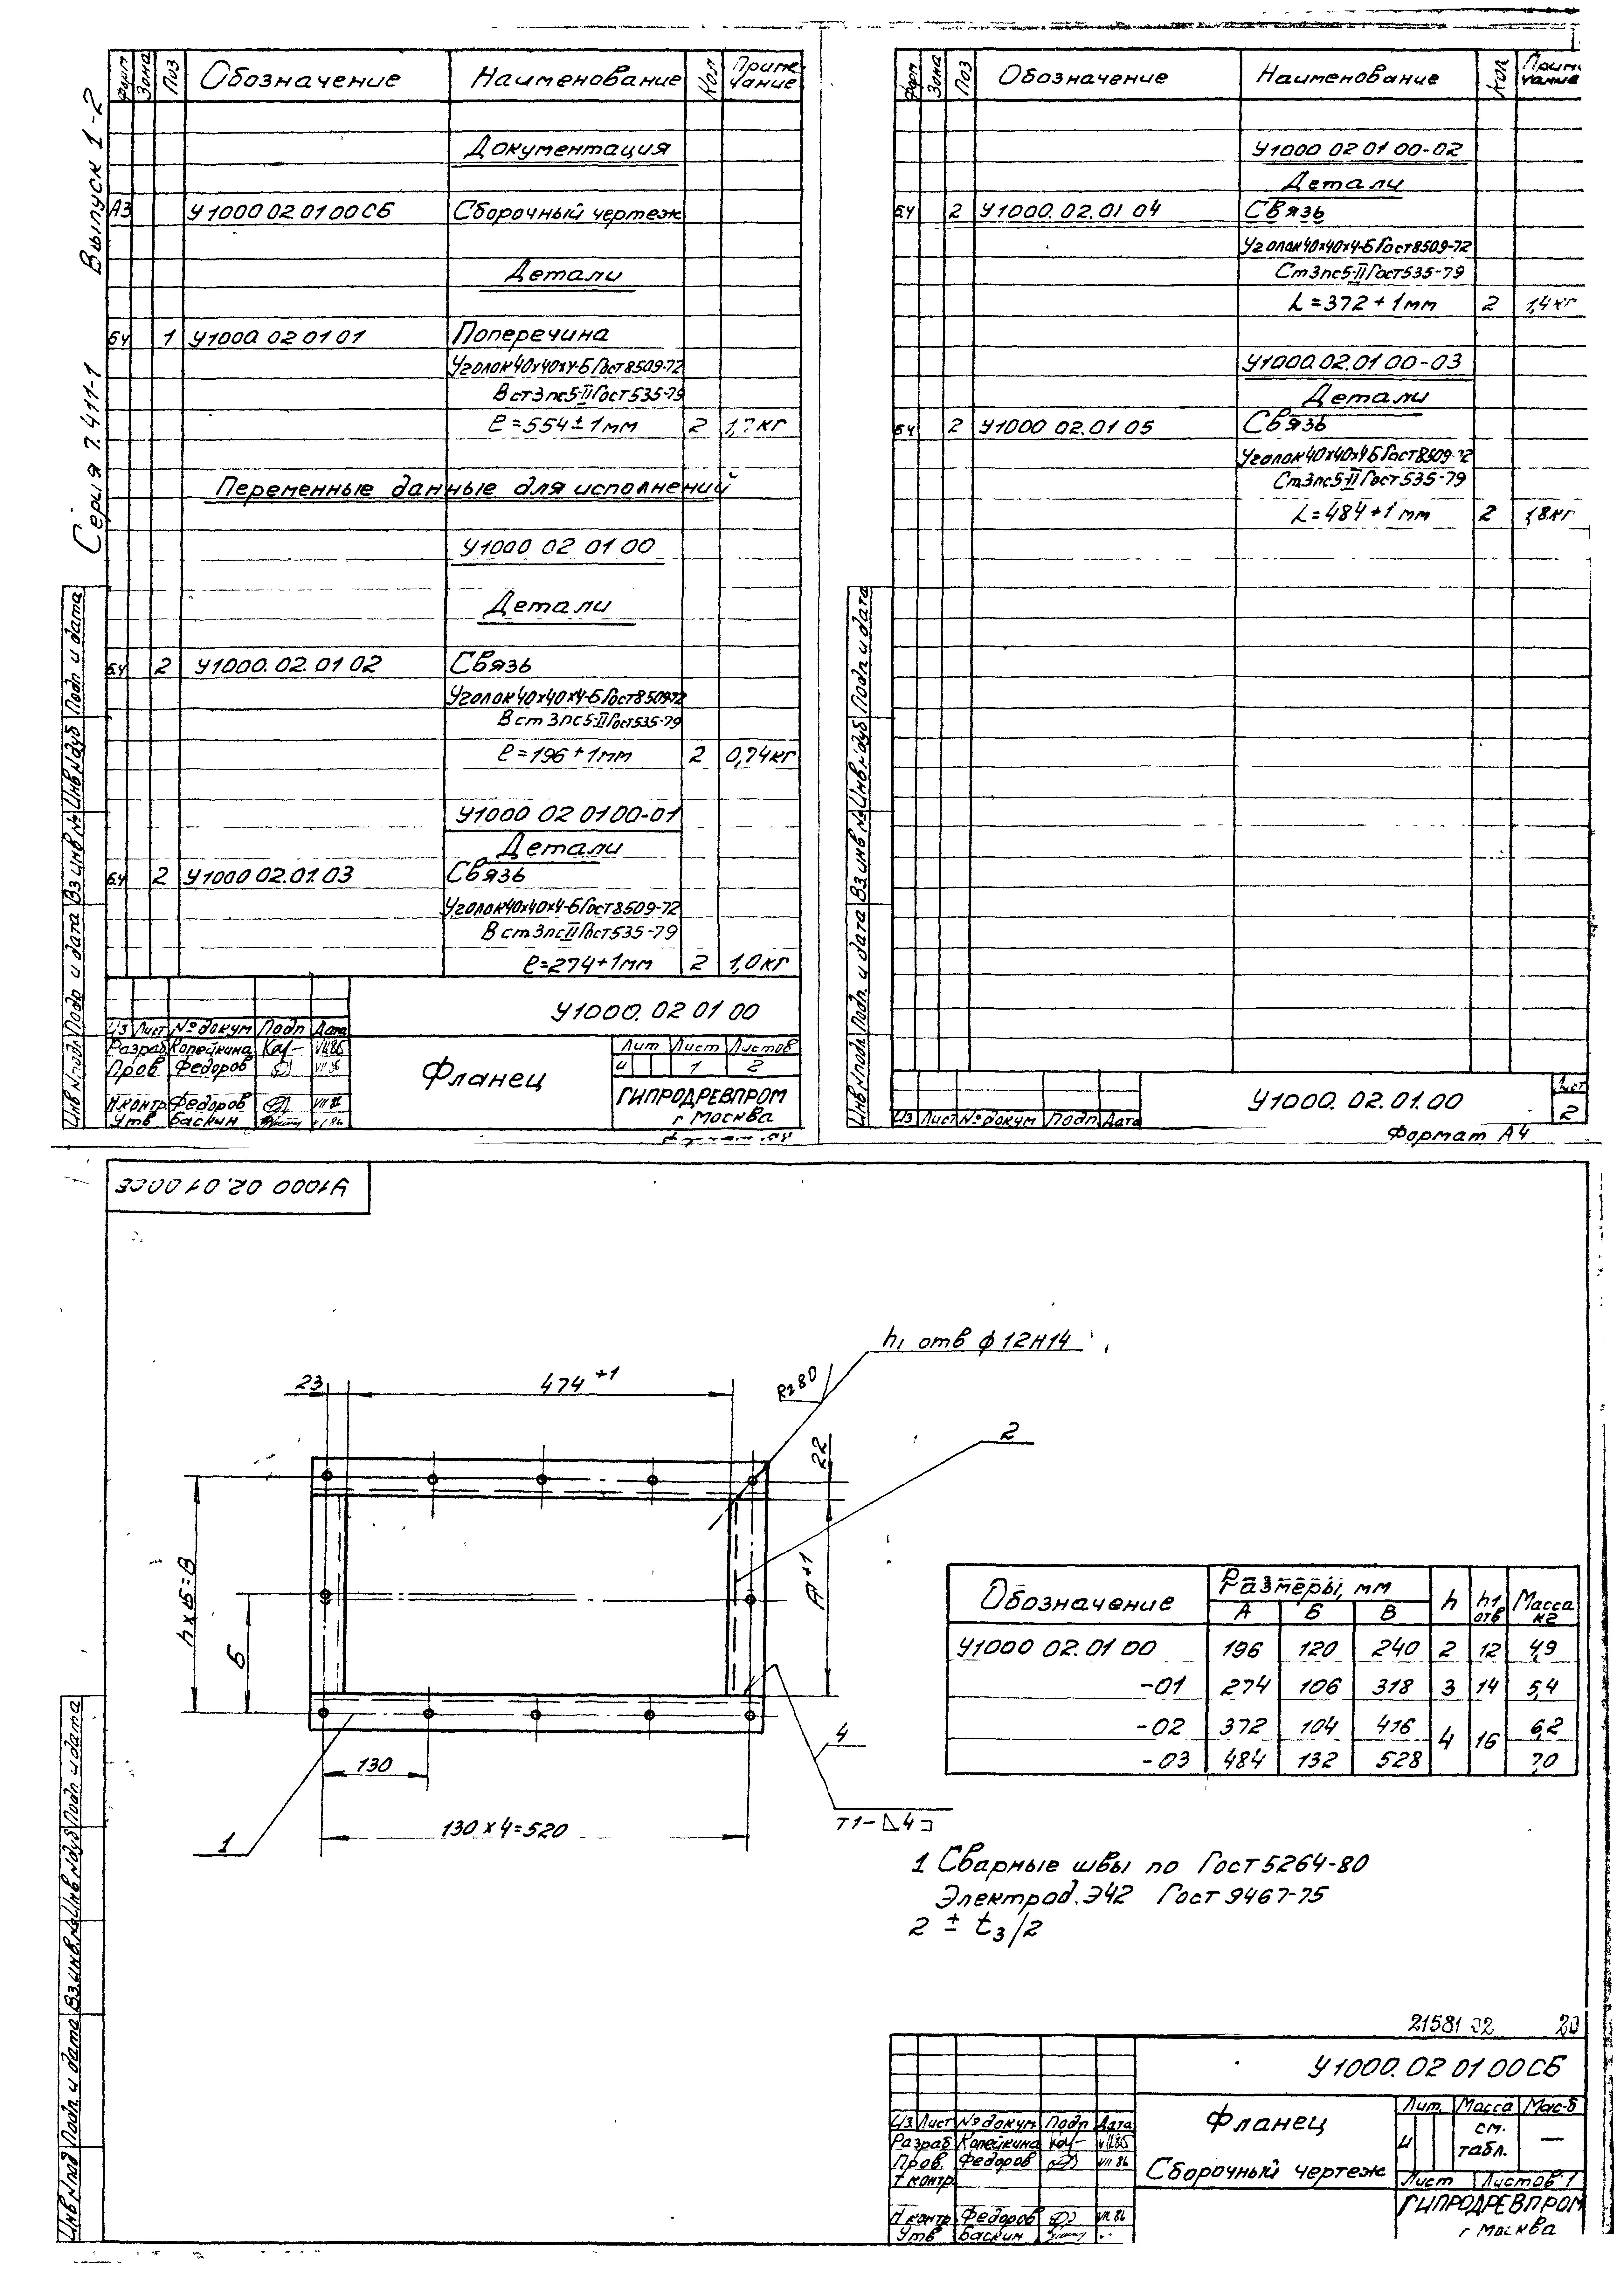 Серия 7.411-1 Выпуск 1-2
Форм Зона Поз Обозначение Наименование Кол Примечание
Документация
А3 У1000 02 01 00 СБ Сборочный чертеж
Детали
БЧ 1 У1000. 02 01 01 Поперечина
Уголок 40х40х4-Б Гост 8509-72
В ст 3 пс 5-II Гост 535-79
ℓ=554±1мм 2 1,7кг
Переменные данные для исполнений
У1000 02 01 00
Детали
БЧ 2 У1000. 02. 01 02 Связь
Уголок 40х40х4-Б Гост 8509-72
В ст 3 пс 5-II Гост 535-79
ℓ=196+1мм 2 0,74кг
У1000 02 01 00-01
Детали
БЧ 2 У1000 02.01.03 Связь
Уголок 40х40х4-Б Гост 8509-72
В ст 3 пс II Гост 535-79
ℓ=274+1мм 2 1,0кг
Инв N подл Подп и дата Вз инв № Инв N дуб Подп и дата
У1000. 02 01 00
Из Лист № докум Подп Дата
Разраб Копейкина
Пров Федоров VII 86
Н.контр. Федоров VII 86
Утв Баскин
Фланец
Лит Лист Листов
и 1 2
ГИПРОДРЕВПРОМ
г Москва
Форм Зона Поз Обозначение Наименование Кол Примечание
У1000 02 01 00-02
Детали
БЧ 2 У1000. 02. 01 04 Связь
Уголок 40х40х4-Б Гост 8509-72
Ст 3 пс 5-II Гост 535-79
L=372+1мм 2 1,4кг
У1000.02.01 00-03
Детали
БЧ 2 У1000 02.01 05 Связь
Уголок 40х40х4 Б Гост 8509-72
Ст 3 пс 5-II Гост 535-79
L=484+1мм 2 1,8кг
Инв N подл. Подп. и дата Вз инв № Инв N дуб Подп и дата
Из Лист № докум Подп. Дата
У1000. 02.01.00
Лист
2
Формат А4
У1000 02.01 00СБ
h1 отв ф12Н14
Rz80
23
474 +1
2
22
А+1
h х Б=В
Б
4
130
130 х 4=520
1
Т1-⊿4
Обозначение Размеры, мм h h1 отв Масса кг
А Б В
У1000 02.01 00 196 120 240 2 12 4,9
-01 274 106 318 3 14 5,4
-02 372 104 416 4 16 6,2
-03 484 132 528 7,0
1 Сварные швы по Гост 5264-80
Электрод. Э42 Гост 9467-75
2 ± t3/2
21581 02 20
У1000. 02 01 00СБ
Из Лист № докум. Подп Дата
Разраб Копейкина
Пров. Федоров VII 86
Т контр.
Н контр Федоров VII 86
Утв Баскин
Фланец
Сборочный чертеж
Лит. Масса Мас-б
и см. табл. —
Лист Листов 1
ГИПРОДРЕВПРОМ
г Москва
Инв N под Подп. и дата Вз. инв. № Инв N дуб Подп и дата